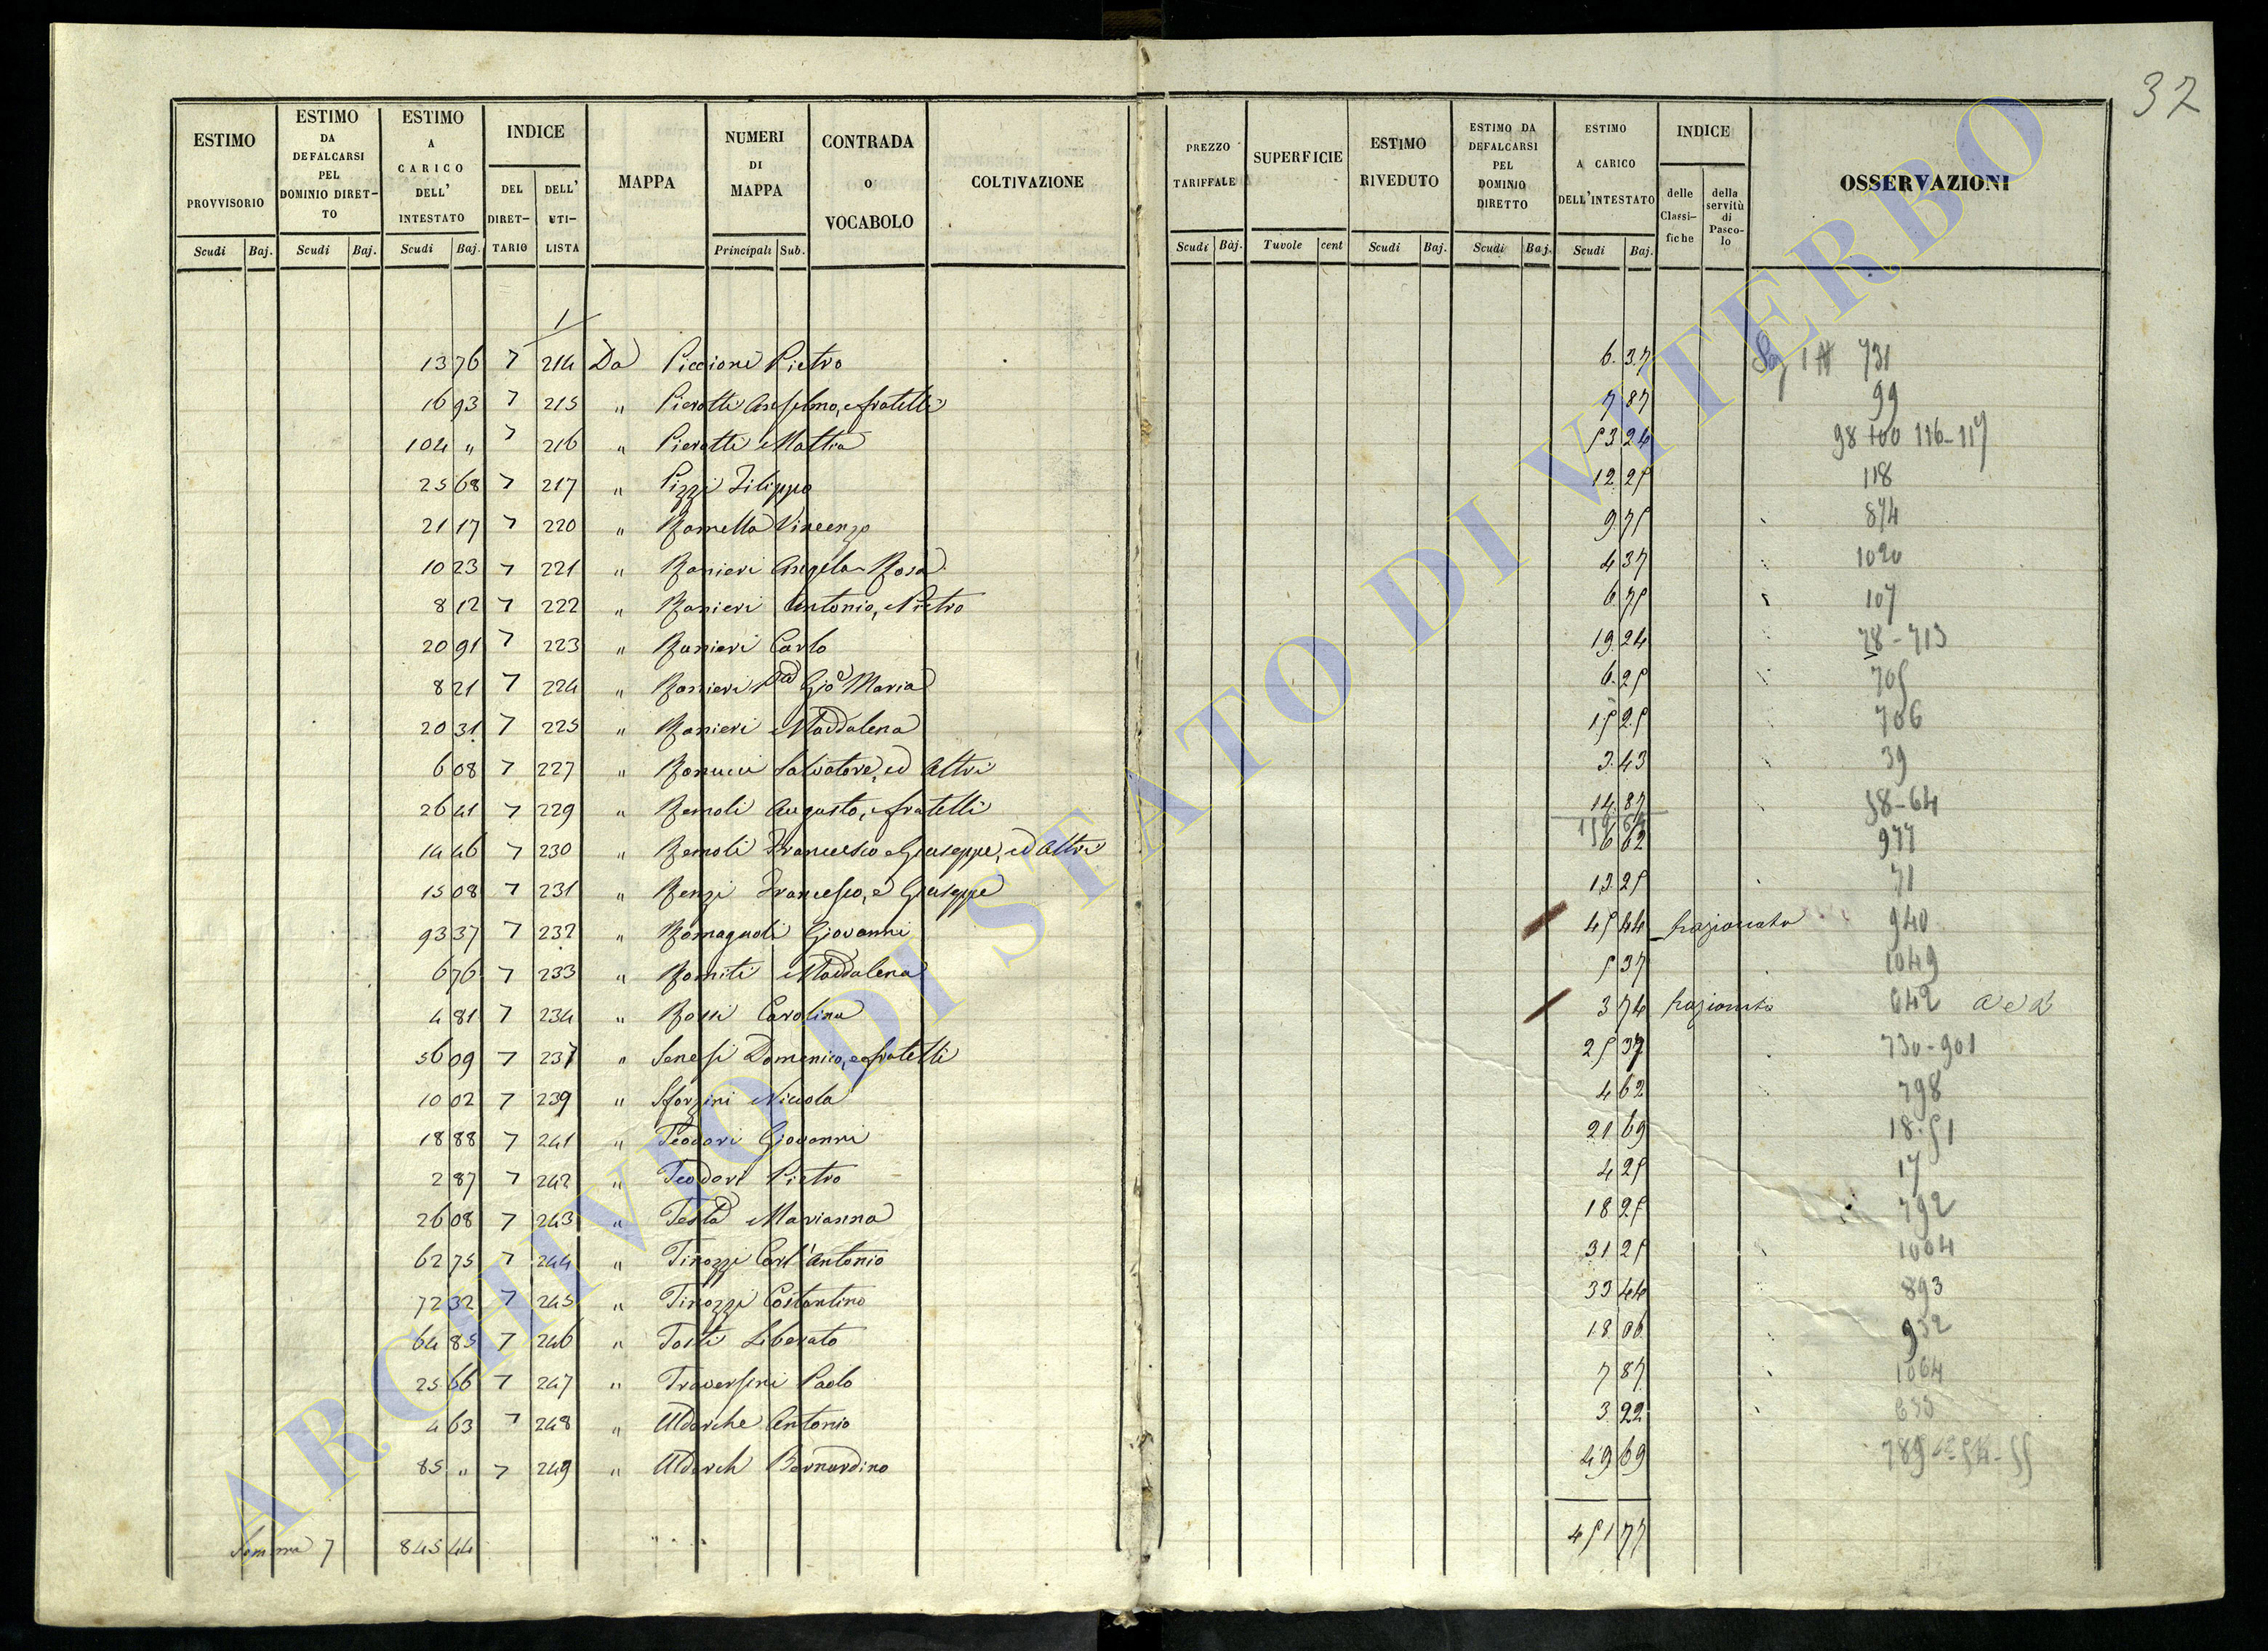 37
ESTIMO PROVVISORIO Scudi Baj. ESTIMO DA DEFALCARSI PEL DOMINIO DIRETTO Scudi Baj. ESTIMO A CARICO DELL' INTESTATO Scudi Baj. INDICE DEL DIRETTARIO DELL' UTILISTA MAPPA NUMERI DI MAPPA Principali Sub. CONTRADA o VOCABOLO COLTIVAZIONE PREZZO TARIFFALE Scudi Baj. SUPERFICIE Tavole cent ESTIMO RIVEDUTO Scudi Baj. ESTIMO DA DEFALCARSI PEL DOMINIO DIRETTO Scudi Baj. ESTIMO A CARICO DELL'INTESTATO Scudi Baj. INDICE delle Classifiche della servitù di Pascolo OSSERVAZIONI
1
13 76 7 214 Da Piccioni Pietro 6.37 731
16 93 7 215 " Pierotti Anselmo, e fratelli 7 87 99
104 " 7 216 " Pierotti Mattia 53 24 98 100 116-117
25 68 7 217 " Pizzi Filippo 12.25 118
21 17 7 220 " Ramella Vincenzo 9.75 874
10 23 7 221 " Ranieri Angela Rosa 4 37 1020
8 12 7 222 " Ranieri Antonio, e Pietro 6 75 107
20 91 7 223 " Ranieri Carlo 19.24 78-713
8 21 7 224 " Ranieri Gio Maria 6.25 705
20 31 7 225 " Ranieri Maddalena 15 25 706
6 08 7 227 " Ranucci Salvatore, ed Altri 3.43 39
26 41 7 229 " Remoli Augusto, e fratelli 14.87 58-64
14 46 7 230 " Remoli Francesco e Giuseppe, ed Altri 6 62 977
15 08 7 231 " Renzi Francesco, e Giuseppe 13.25 71
93 37 7 232 " Romagnoli Giovanni 45 44 frazionato 940
6 76 7 233 " Romiti Maddalena 5 37 1049
4 81 7 234 " Rossi Carolina 3 74 frazionato 642
56 09 7 237 " Senesi Domenico, e fratelli 25 37 730-901
10 02 7 239 " Sforzini Nicola 4 62 798
18 88 7 241 " Teodori Giovanni 21 69 18-51
2 87 7 242 " Teodori Pietro 4 25 17
26 08 7 243 " Testa Marianna 18 25 792
62 75 7 244 " Tinozzi Carl'Antonio 31 25 1004
72 32 7 245 " Tinozzi Costantino 33 44 893
64 85 7 246 " Tosti Liberato 18.06 932
25 66 7 247 " Traversini Paolo 7 87 1064
4 63 7 248 " Alderche Antonio 3 22 633
85 " 7 249 " Alderch Bernardino 49 69 789
Somma 7 845 44 451 77
ARCHIVIO DI STATO DI VITERBO